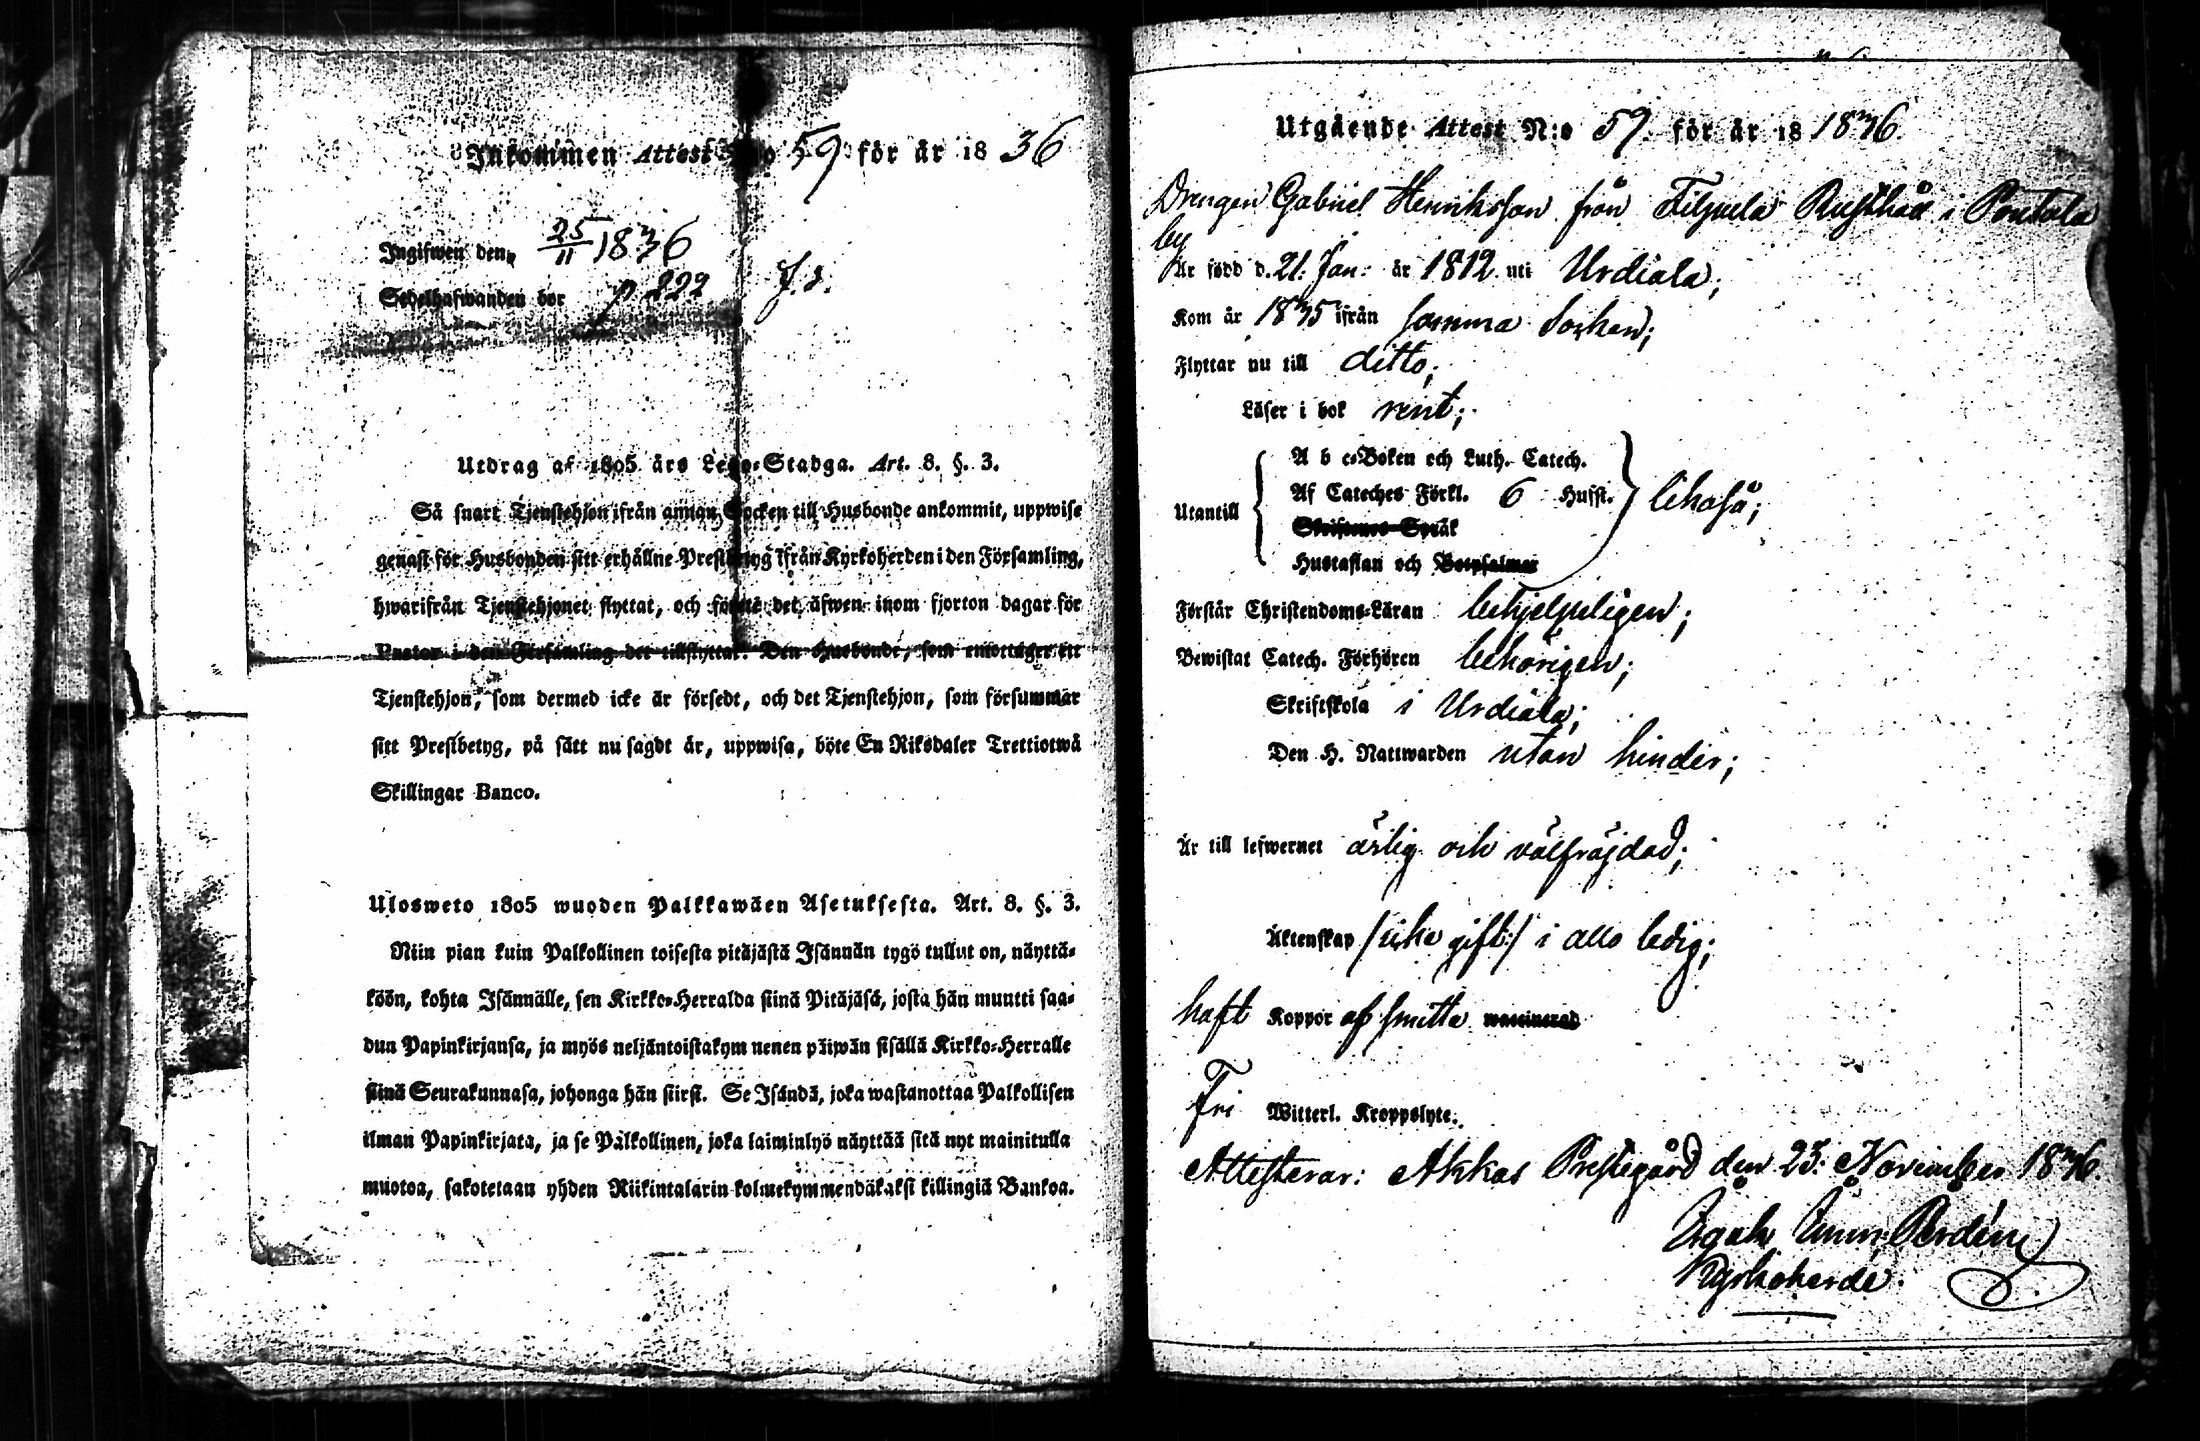 Inkommen Attest N:o 59 för år 18 36
Ingifwen den 25/11 1836
Sedelhafwanden bor p 222 f. d.
Utdrag af 1805 års Lego-Stadga. Art. 8. §. 3.
Så snart Tjenstehjon ifrån annan Socken till Husbonde ankommit, uppwise
genast för Husbonden sitt erhållne Prestbetyg ifrån Kyrkoherden i den Församling,
hwarifrån Tjenstehjonet flyttat, och förete det äfwen inom fjorton dagar för
Pastor i den Församling det tillflyttat. Den Husbonde, som emottager ett
Tjenstehjon, som dermed icke är försedt, och det Tjenstehjon, som försummar
sitt Prestbetyg, på sätt nu sagdt är, uppwisa, böte En Riksdaler Trettiotwå
Skillingar Banco.
Ulosweto 1805 wuoden Palkkawäen Asetuksesta. Art. 8. §. 3.
Niin pian kuin Palkollinen toisesta pitäjästä Isännän tygö tullut on, näyttä-
köön, kohta Isännälle, sen Kirkko-Herralda siinä Pitäjäsä, josta hän muutti saa-
dun Papinkirjansa, ja myös neljäntoistakymmenen päiwän sisällä Kirkko-Herralle
siinä Seurakunnasa, johonga hän siirsi. Se Isändä, joka wastanottaa Palkollisen
ilman Papinkirjata, ja se Palkollinen, joka laiminlyö näyttää sitä nyt mainitulla
muotoa, sakotetaan yhden Riikintalarin kolmekymmendäkaksi killingiä Bankoa.
Utgående Attest N:o 59 för år 18 1836.
Drengen Gabriel Henriksson från Filpula Rusthåll i Pentala
by
Är född d. 21: Jan: år 1812 uti Urdiala;
Kom år 1835 ifrån samma Socken;
Flyttar nu till ditto;
Läser i bok rent;
Utantill
A b c-Boken och Luth. Catech.
Af Cateches Förkl. 6 Hufst. likaså;
Skriftenes Språk
Hustaflan och Botpsalmer
Förstår Christendoms-Läran behjelpeligen;
Bewistat Catech. Förhören behörigen;
Skriftskola i Urdiala;
Den H. Nattwarden utan hinder;
Är till lefwernet ärlig och välfräjdad;
Äktenskap /: icke gift :/ i allo ledig;
haft Koppor af smitta waccinerad
Fri Witterl. Kroppslyte.
Attesterar: Akkas Prestegård den 23: November 1836.
Kyrkoherde.